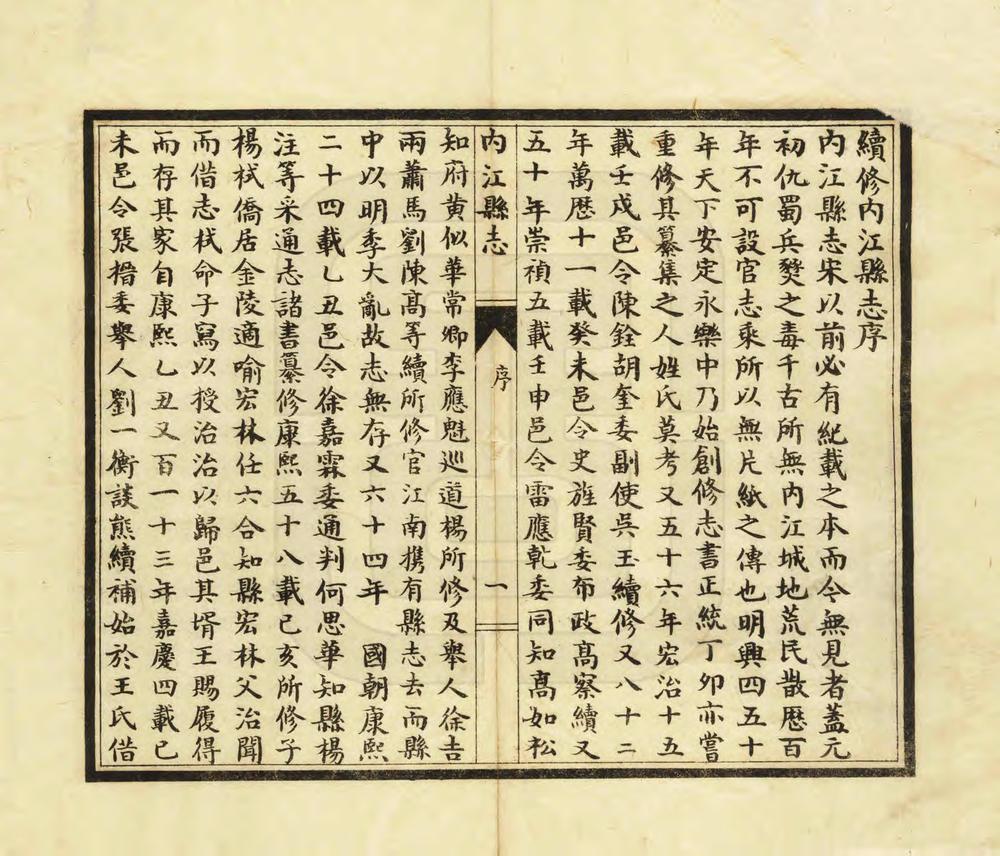 續修內江縣志序
內江縣志宋以前必有紀載之本而今無見者蓋元
初仇蜀兵燹之毒千古所無內江城地荒民散歷百
年不可設官志乘所以無片紙之傳也明興四五十
年天下安定永樂中乃始創修志書正統丁卯亦嘗
重修其纂集之人姓氏莫考又五十六年宏治十五
載壬戌邑令陳銓胡奎委副使吳玉續修又八十二
年萬歷十一載癸未邑令史旌賢委布政高察續又
五十年崇禎五載壬申邑令雷應乾委同知高如松
內江縣志 序 一
知府黄似華常卿李應魁巡道楊所修及舉人徐吉
兩蕭馬劉陳高等續所修官江南携有縣志去而縣
中以明季大亂故志無存又六十四年 國朝康熙
二十四載乙丑邑令徐嘉霖委通判何思華知縣楊
注等采通志諸書纂修康熙五十八載己亥所修子
楊栻僑居金陵適喻宏林任六合知縣宏林父治聞
而借志栻命子寫以授治治以歸邑其壻王賜履得
而存其家自康熙乙丑又百一十三年嘉慶四載已
未邑令張搢委舉人劉一衡談熊續補始於王氏借